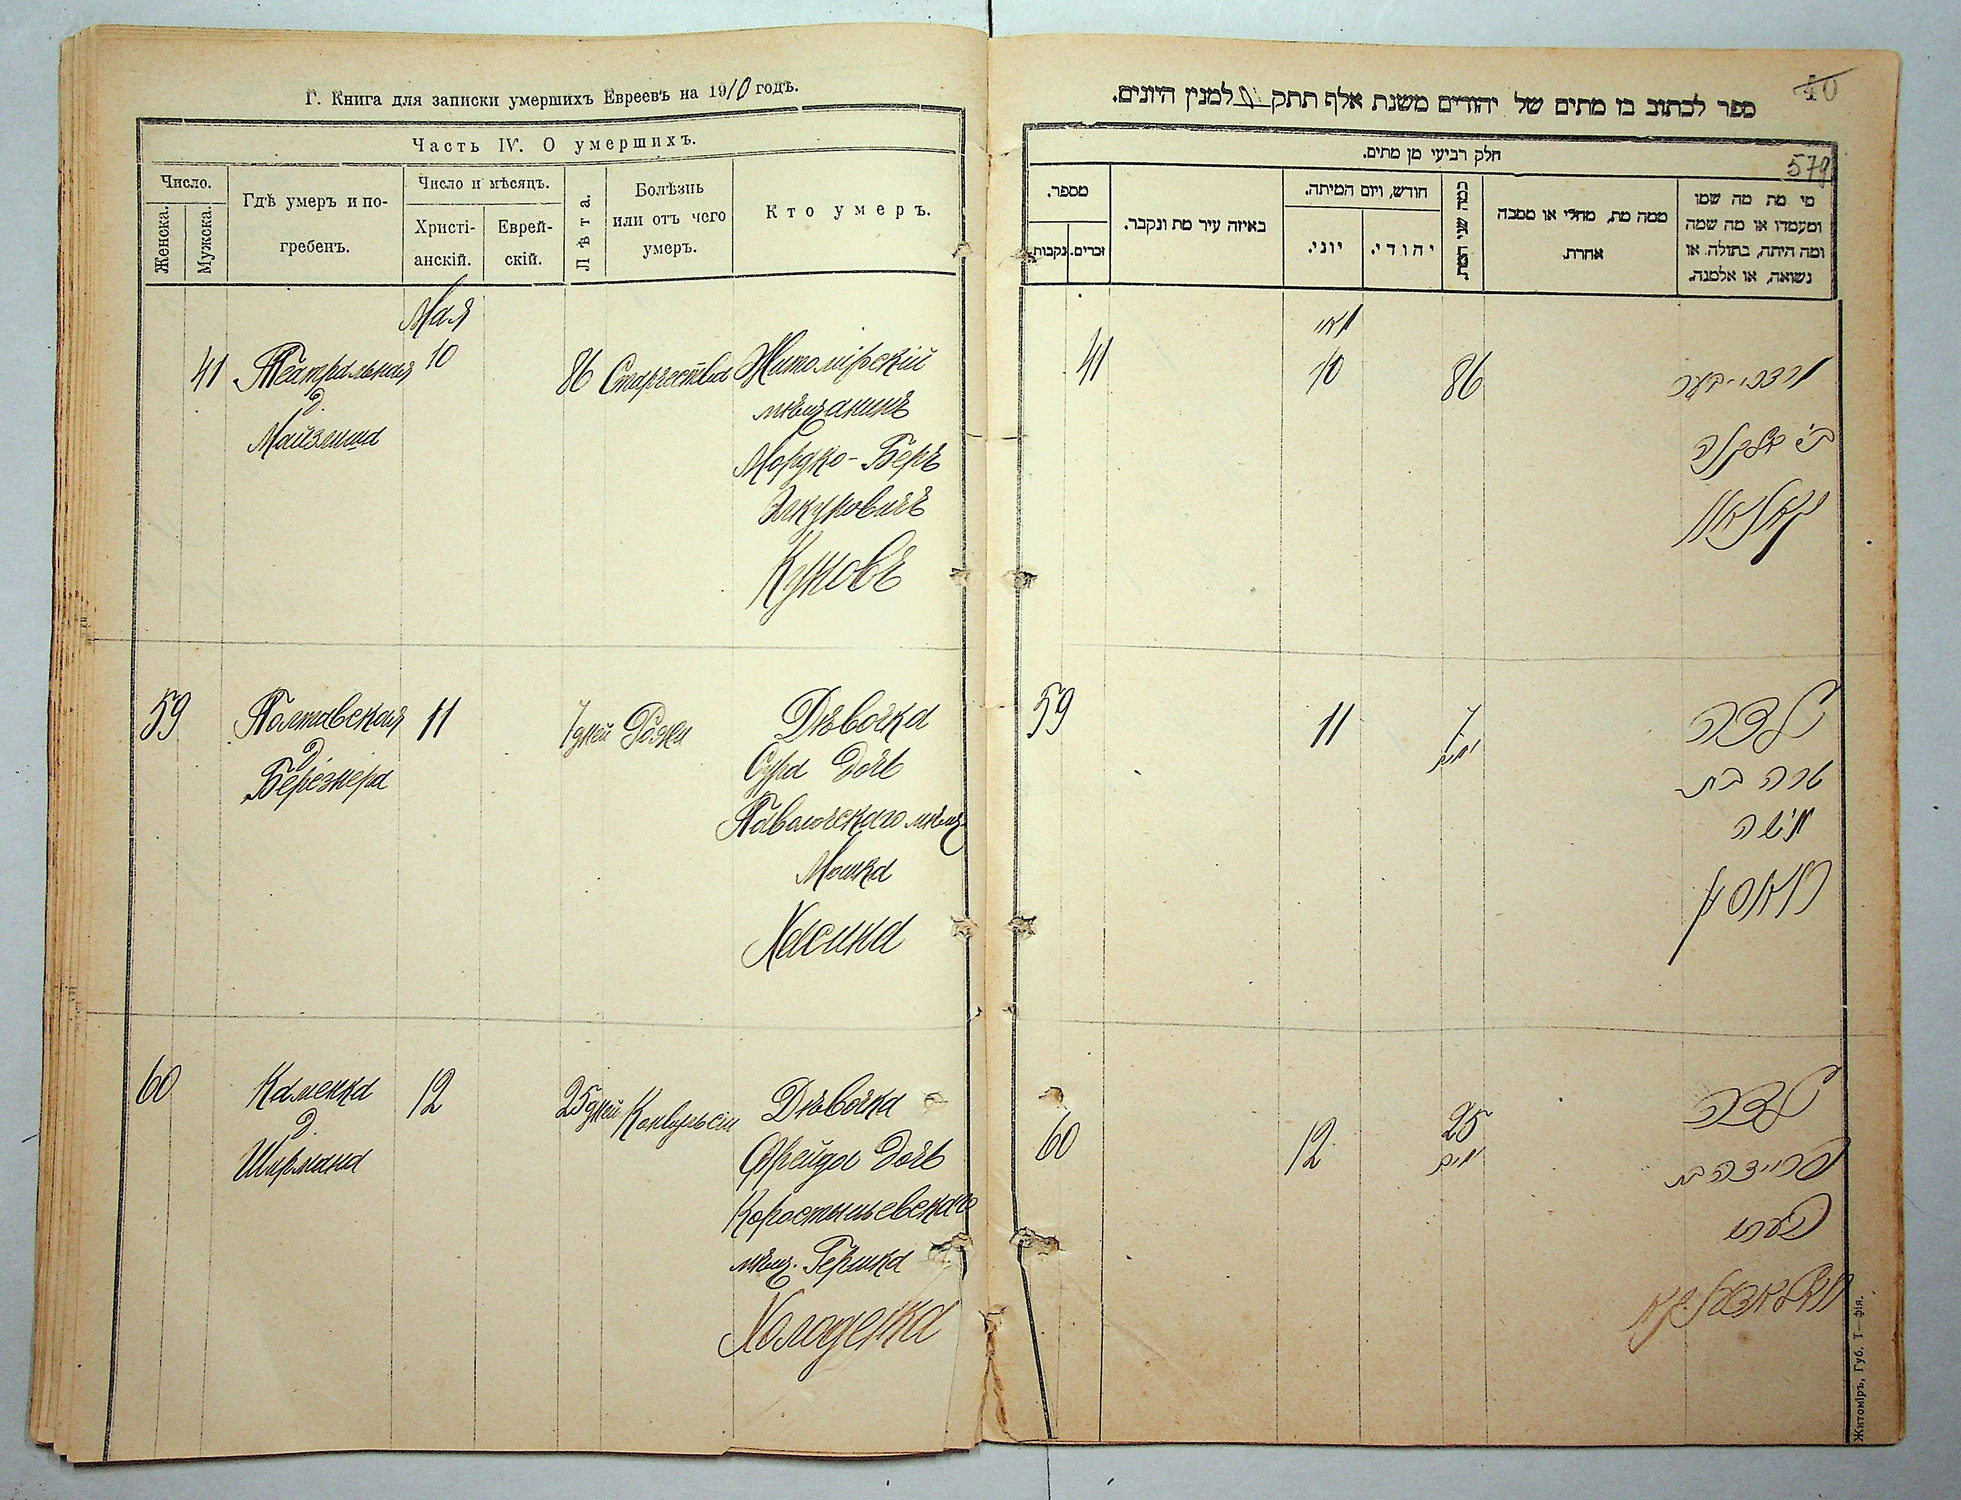 Г. Книга для записки умершихъ Евреевъ на 1910 годъ.
Часть IV. О умершихъ.
Число.
Женска.
Мужска.
Гдѣ умеръ и по-
гребенъ.
Число и мѣсяцъ.
Христі-
анскій.
Еврей-
скій.
Лѣта.
Болѣзнь
или отъ чего
умеръ.
Кто умеръ.
Мая
41 Театральная 10 86 Старчества Житомірскій
д. мѣщанинъ
Майзлиша Мордко-Беръ
Куновъ
59 Полтавская 11 7 дней Рожи Дѣвочка
д. Сура дочь
Березнера Паволочскаго мѣщ.
Мошка
Хасина
60 Каменка 12 25 дней Конвульсіи Дѣвочка
д. Фрейда дочь
Ширмана Коростышевскаго
мѣщ. Гершка
Холоденка
40
579
ספר לכתוב בו מתים של יהודים משנת אלף תתק למנין היונים.
חלק רביעי מן מתים.
מספר.
נקבות.
זכרים.
באיזה עיר מת ונקבר.
חודש, ויום המיתה.
יוני.
יהודי.
כמה שני המת.
ממה מת, מחלי או מסבה
אחרת.
מי מת מה שמו
ומעמדו או מה שמה
ומה היתה, בתולה או
נשואה, או אלמנה.
מאי
41 10 86 מרדכי-בער
59 11 7 ילדה
ימים
שרה בת
משה
חאסין
60 12 25 ילדה
ימים
פריידה בת
הערש
Житоміръ, Губ. Т—фія.